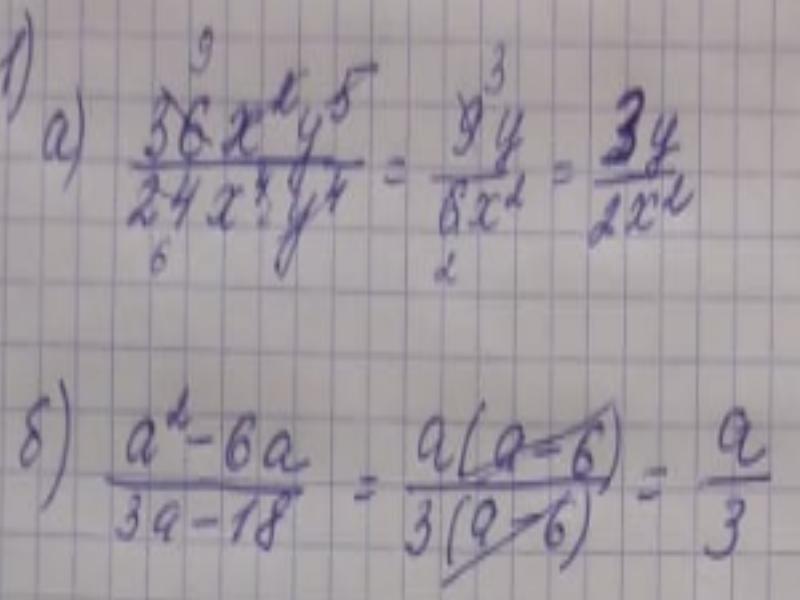 1)
а) 36x²y⁵ / 24x⁴y⁴ = 9y / 6x² = 3y / 2x²
9 6 3 2
б) a² - 6a / 3a - 18 = a(a - 6) / 3(a - 6) = a / 3